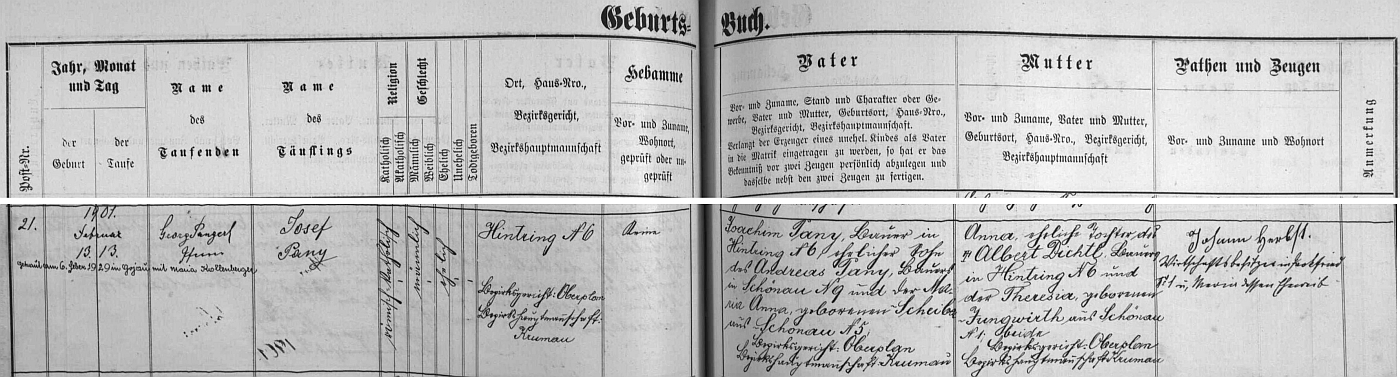 Geburts-Buch.
Post-Nr.
Jahr, Monat
und Tag
der
Geburt
der
Taufe
Name
des
Taufenden
Name
des
Täuflings
Religion
Katholisch
Akatholisch
Geschlecht
Männlich
Weiblich
Ehelich
Unehelich
Todtgeboren
Ort, Haus-Nro.,
Bezirksgericht,
Bezirkshauptmannschaft
Hebamme
Vor- und Zuname,
Wohnort,
geprüft oder un-
geprüft
Vater
Vor- und Zuname, Stand und Charakter oder Ge-
werbe, Vater und Mutter, Geburtsort, Haus-Nro.,
Bezirksgericht, Bezirkshauptmannschaft.
Verlangt der Erzeuger eines unehel. Kindes als Vater
in die Matrik eingetragen zu werden, so hat er das
Bekenntniß vor zwei Zeugen persönlich abzulegen und
dasselbe nebst den zwei Zeugen zu fertigen.
Mutter
Vor- und Zuname, Vater und Mutter,
Geburtsort, Haus-Nro., Bezirksgericht,
Bezirkshauptmannschaft
Pathen und Zeugen
Vor- und Zuname und Wohnort
Anmerkung
21.
1901.
Februar
13. 13.
Georg Pangerl
Josef
Pany
römisch katholisch
männlich
ehelich
Hintring N 6
Bezirksgericht: Oberplan
Bezirkshauptmannschaft:
Krumau
Keine
Joachim Pany, Bauer in
Hintring N 6, ehelicher Sohn
des Andreas Pany, Bauers
in Schönau N 9 und der Ma-
ria Anna, geborenen Scheiber
aus Schönau N 5
Bezirksgericht: Oberplan
Bezirkshauptmannschaft Krumau
Anna, eheliche Tochter des
Albert Dichtl, Bauers
in Hintring N 6 und
der Theresia, geborenen
Jungwirth aus Schönau
N 1, beide
Bezirksgericht: Oberplan
Bezirkshauptmannschaft Krumau
Johann Herbst,
Wirtschaftsbesitzer in
N 1 u. Maria dessen Eheweib
getraut am 6. 1929 in Gojau mit Maria Kollenberger